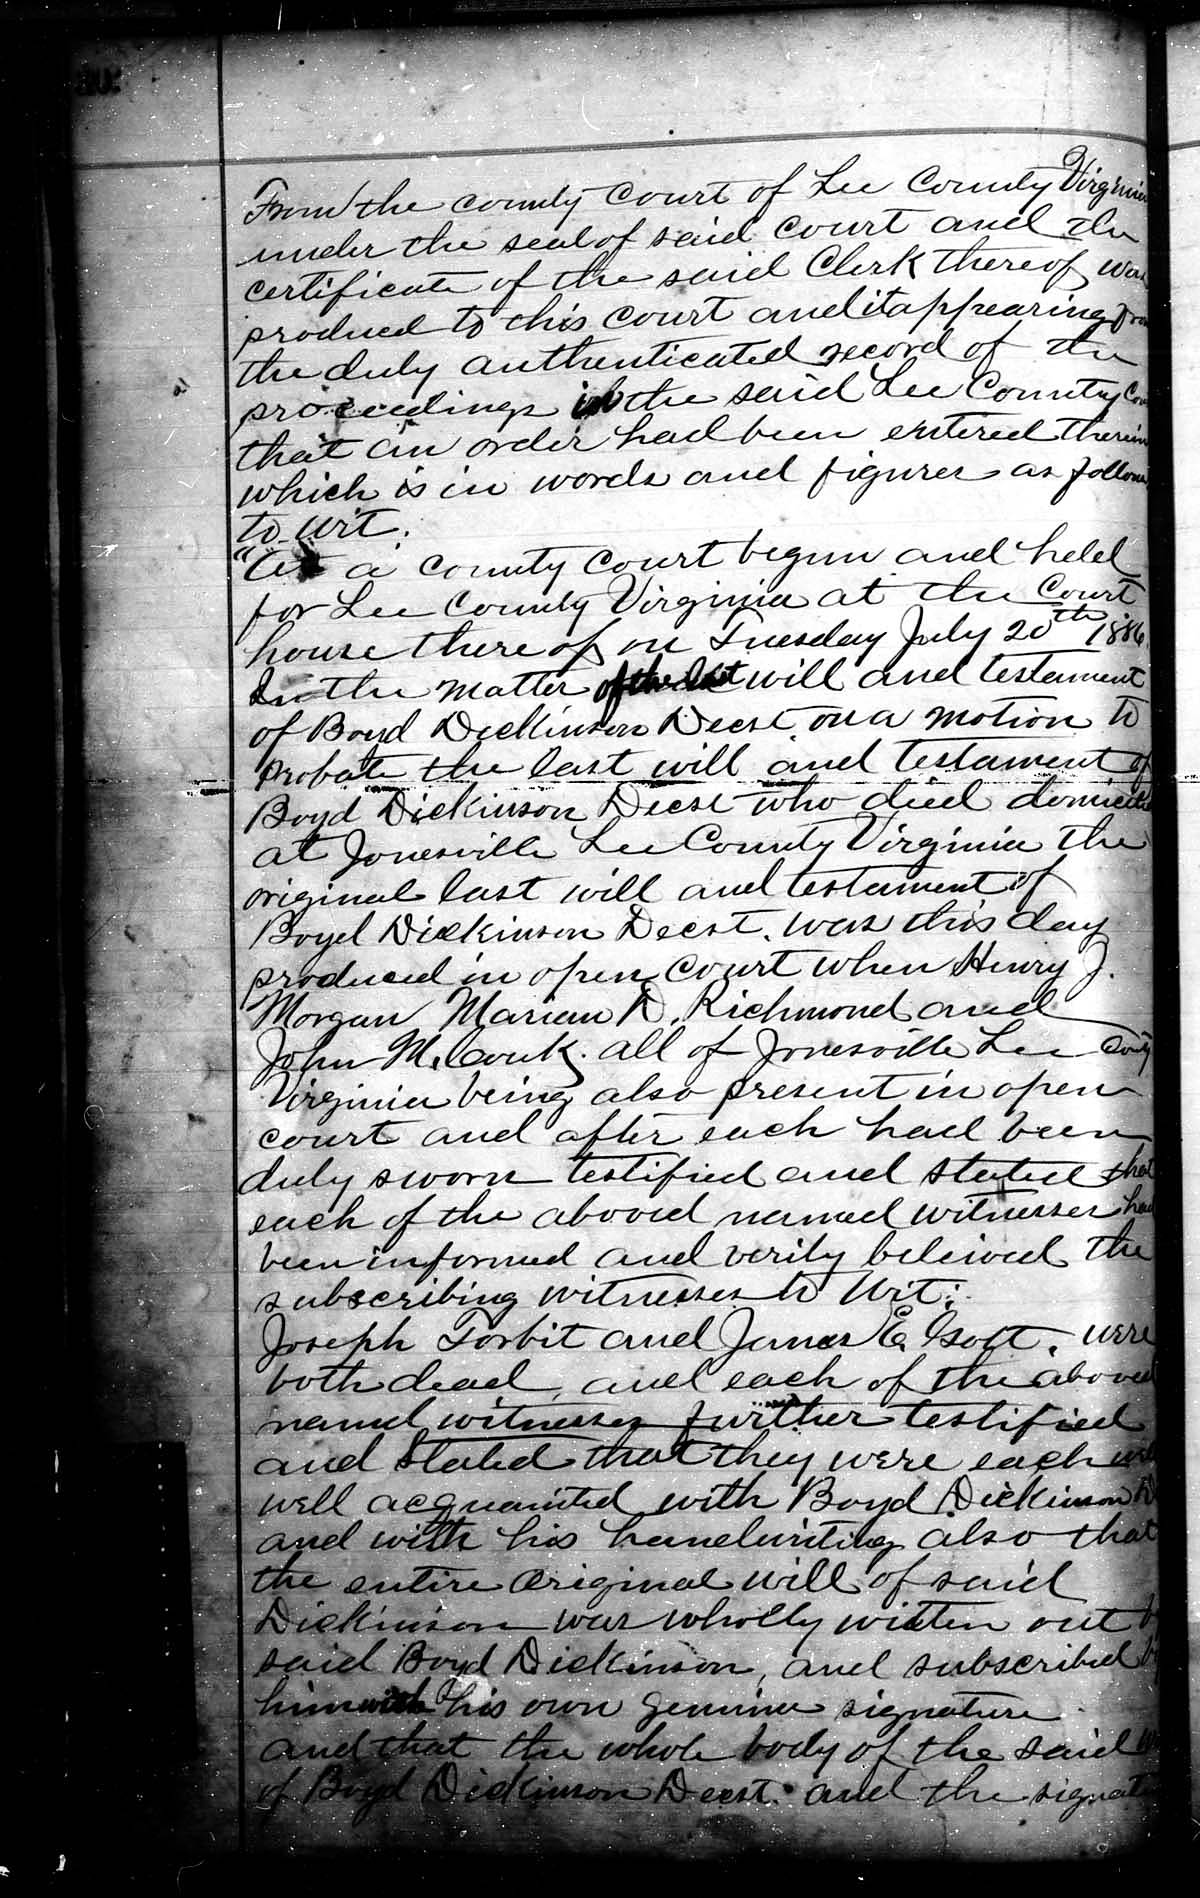 From the county court of Lee County Virginia
under the seal of said court and the
certificate of the said Clerk thereof was
produced to this court and it appearing from
the duly authenticated record of the
proceedings in the said Lee County
that an order had been entered therein
which is in words and figures as follows
to wit.
"At a county court begun and held
for Lee County Virginia at the Court
house there of on Tuesday July 20th 1886
In the matter of the last will and testament
of Boyd Dickinson Decst. on a motion to
probate the last will and testament of
Boyd Dickinson Decst who died domiciled
at Jonesville Lee County Virginia the
original last will and testament of
Boyd Dickinson Decst. was this day
produced in open court when Henry J.
Morgan Marian D. Richmond and
John M. Couk. all of Jonesville Lee County
Virginia being also present in open
court and after each had been
duly sworn testified and stated that
each of the aboved named witnesses had
been informed and verily beleived the
subscribing witnesses to wit:
Joseph Torbit and James E. Gott. were
both dead, and each of the aboved
named witnesses further testified
and stated that they were each
well acquainted with Boyd Dickinson
and with his handwriting also that
the entire original will of said
Dickinson was wholly written out by
said Boyd Dickinson, and subscribed by
him with his own genuine signature
and that the whole body of the said
of Boyd Dickinson Decst. and the signature